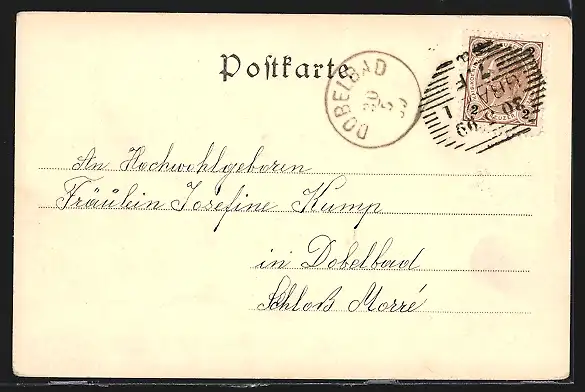 Postkarte
DOBELBAD
20
5
99
2 2
An Hochwohlgeborin
Fräulein Josefine Kump
in Dobelbad
Schloß Morré